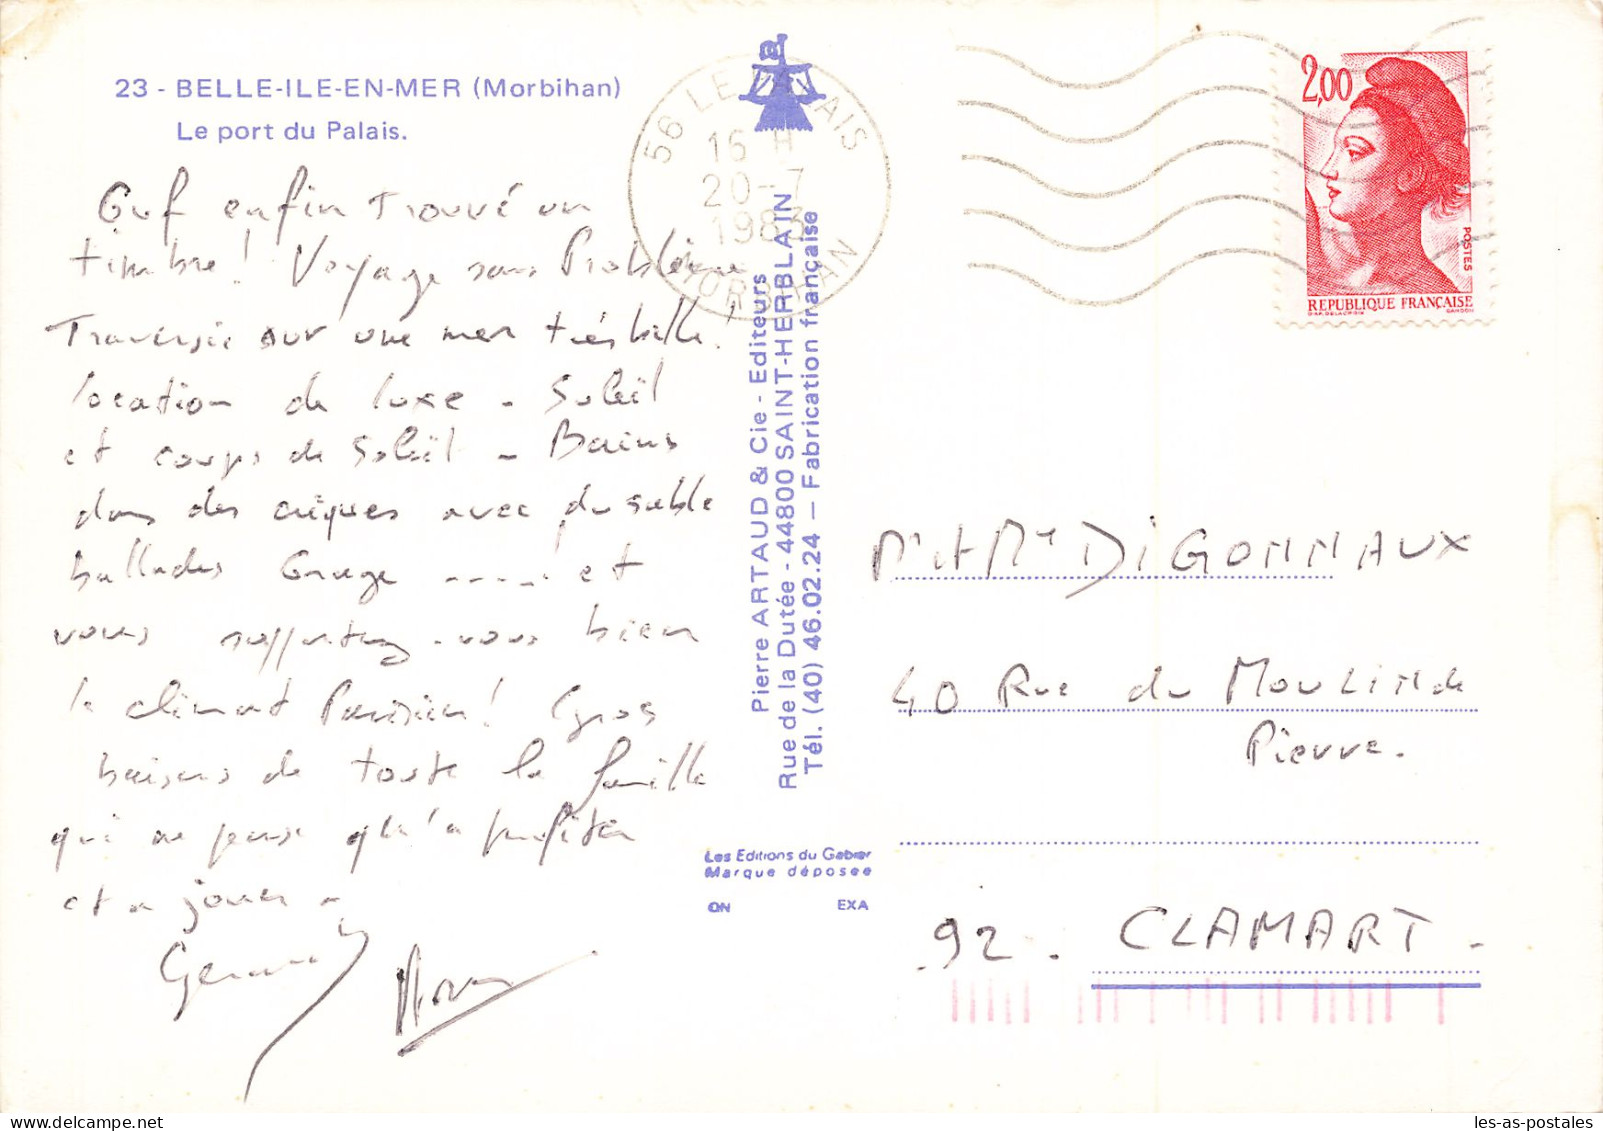 23 - BELLE-ILE-EN-MER (Morbihan)
Le port du Palais.
Ouf enfin trouvé un
timbre! Voyage sans Problème
Traversée sur une mer très belle!
location de luxe - Soleil
et coups de Soleil - Bains
dans des criques avec du sable
ballades Grage ..... et
vous supportez-vous bien
le climat Parisien! Gros
baisers de toute la famille
qui ne pense qu'à profiter
et a jouer -
Gérard
56 LE PALAIS
16 H
20-7
1983
MORBIHAN
Pierre ARTAUD & Cie - Editeurs
Rue de la Dutée - 44800 SAINT-HERBLAIN
Tél. (40) 46.02.24 — Fabrication française
Les Editions du Gabier
Marque déposée
QN EXA
2,00
POSTES
REPUBLIQUE FRANÇAISE
D'AP. DELACROIX GANDON
Mr et Me DIGONNAUX
40 Rue du MOULIN de
Pierre.
92. CLAMART.
les-as-postales